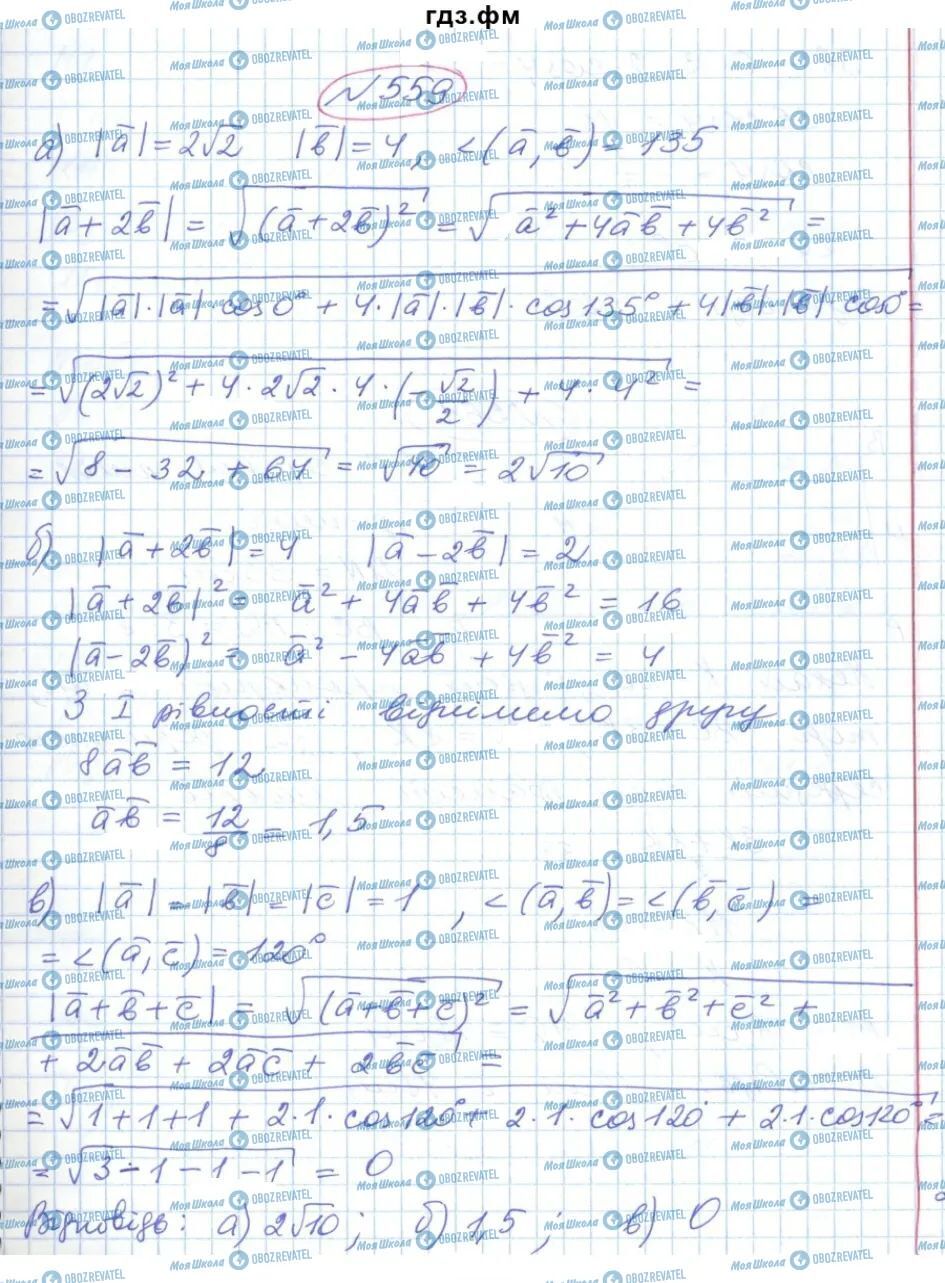 гдз.фм
№559
а) |a̅| = 2√2 |b̅| = 4, <(a̅, b̅) = 135
|a̅ + 2b̅| = √((a̅ + 2b̅)²) = √(a̅² + 4a̅b̅ + 4b̅²) =
= √(|a̅|·|a̅|·cos0° + 4·|a̅|·|b̅|·cos135° + 4|b̅|·|b̅|·cos0°) =
= √((2√2)² + 4·2√2·4·(-√2/2) + 4·4²) =
= √(8 - 32 + 64) = √40 = 2√10
б) |a̅ + 2b̅| = 4 |a̅ - 2b̅| = 2
|a̅ + 2b̅|² = a̅² + 4a̅b̅ + 4b̅² = 16
|a̅ - 2b̅)² = a̅² - 4a̅b̅ + 4b̅² = 4
З I рівності віднімемо другу
8a̅b̅ = 12
a̅b̅ = 12/8 = 1,5
в) |a̅| = |b̅| = |c̅| = 1, <(a̅, b̅) = <(b̅, c̅) =
= <(a̅, c̅) = 120°
|a̅ + b̅ + c̅| = √((a̅ + b̅ + c̅)²) = √(a̅² + b̅² + c̅² +
+ 2a̅b̅ + 2a̅c̅ + 2b̅c̅) =
= √(1 + 1 + 1 + 2·1·cos120° + 2·1·cos120° + 2·1·cos120°) =
= √(3 - 1 - 1 - 1) = 0
Відповідь: а) 2√10; б) 1,5; в) 0
МояШкола OBOZREVATEL